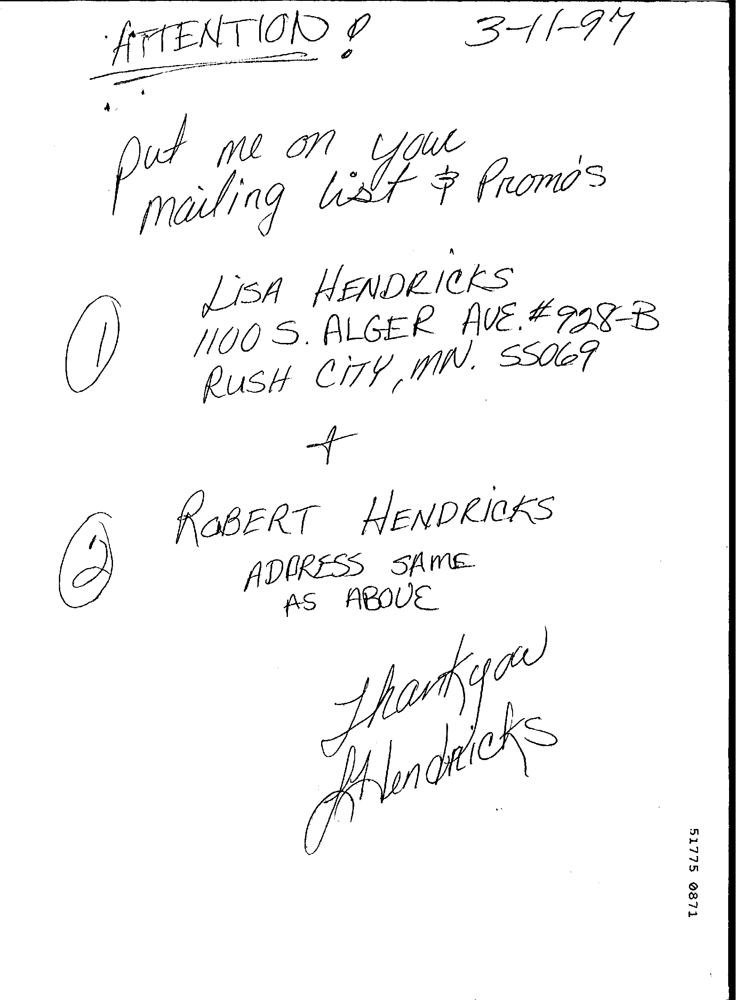 ATTENTION! 3-11-97
Put me on your
mailing list & Promo's
1 LISA HENDRICKS
1100 S. ALGER AVE. #928-B
RUSH CITY, MN. 55069
+
2 ROBERT HENDRICKS
ADDRESS SAME
AS ABOVE
Thankyou
LHendricks
51775 0871